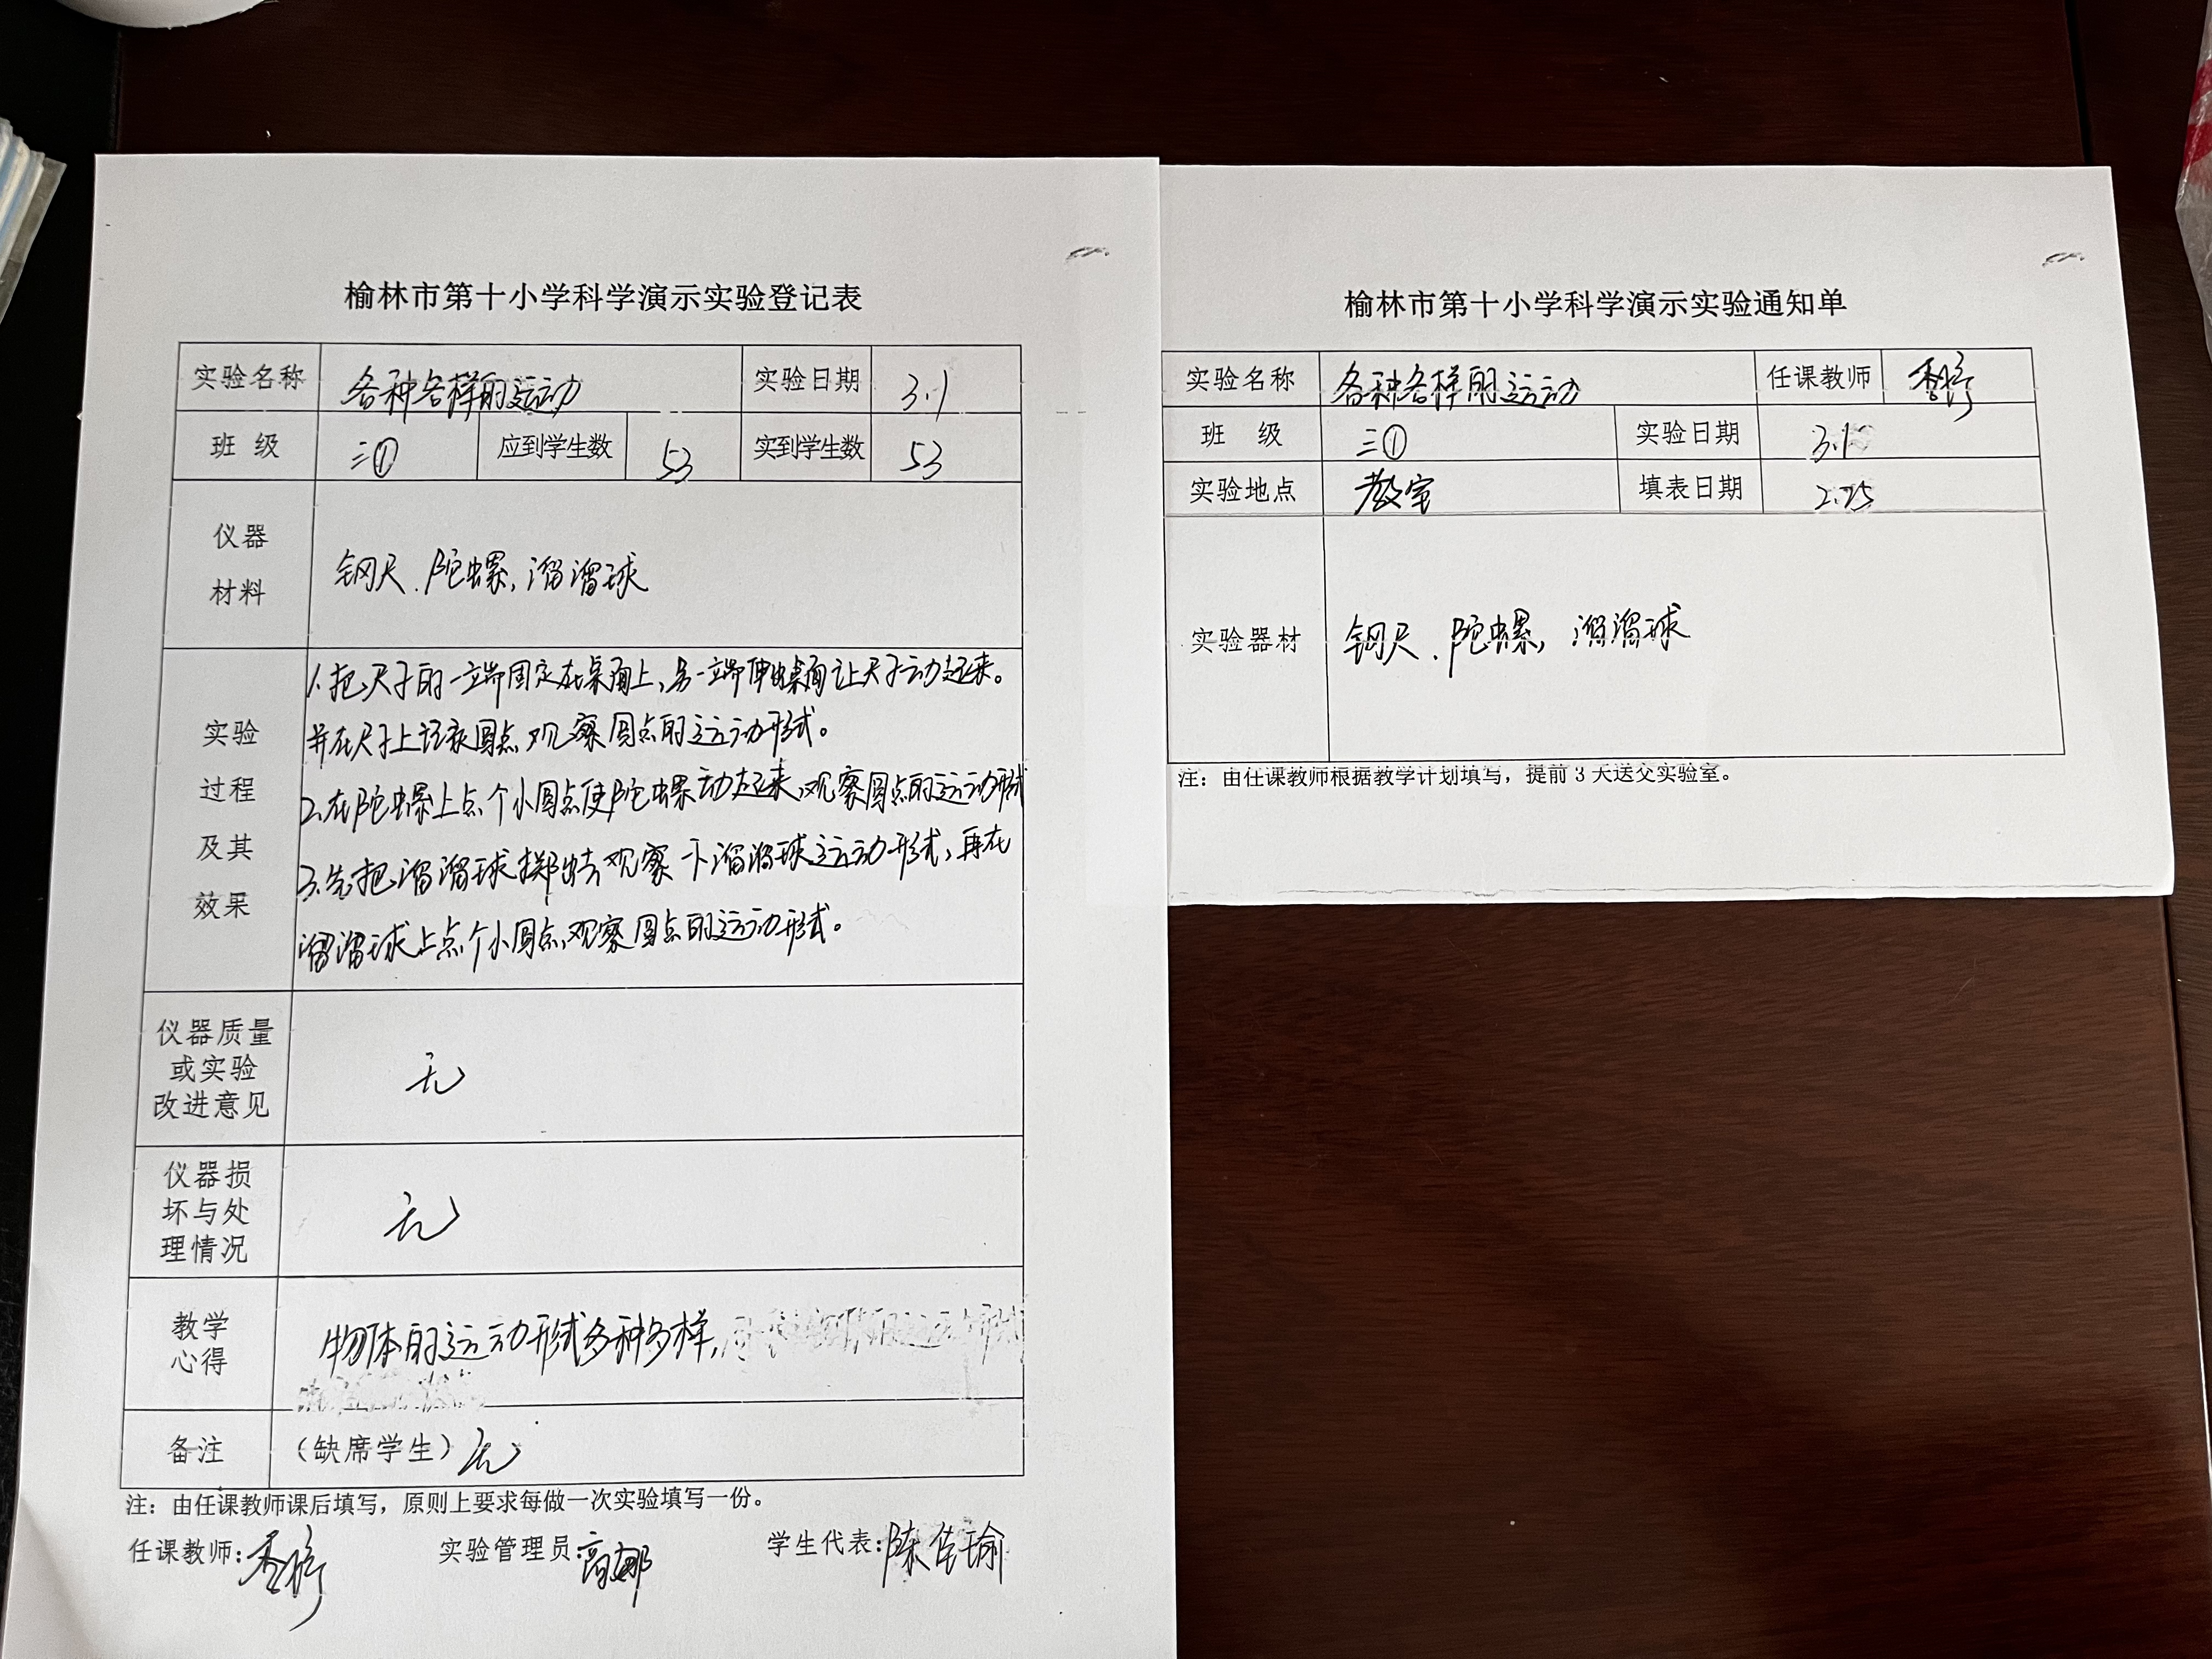 榆林市第十小学科学演示实验登记表
实验名称 各种各样的运动 实验日期 3.1
班 级 三① 应到学生数 53 实到学生数 53
仪器
材料
钢尺、陀螺，溜溜球
实验
过程
及其
效果
1.把尺子的一端固定在桌面上，另一端伸出桌面让尺子动起来。
并在尺子上 圆点观察圆点的运动形式。
2.在陀螺上点个小圆点使陀螺动起来，观察圆点的运动形式
3.先把溜溜球掷出去，观察一下溜溜球运动形式，再在
溜溜球上点个小圆点，观察圆点的运动形式。
仪器质量
或实验
改进意见
无
仪器损
坏与处
理情况
无
教学
心得
物体的运动形式多种多样，
备注 （缺席学生）无
注：由任课教师课后填写，原则上要求每做一次实验填写一份。
任课教师： 实验管理员：高娜 学生代表：陈佳瑜
榆林市第十小学科学演示实验通知单
实验名称 各种各样的运动 任课教师
班 级 三① 实验日期 3.1
实验地点 教室 填表日期 2.25
实验器材 钢尺、陀螺，溜溜球
注：由任课教师根据教学计划填写，提前3天送交实验室。